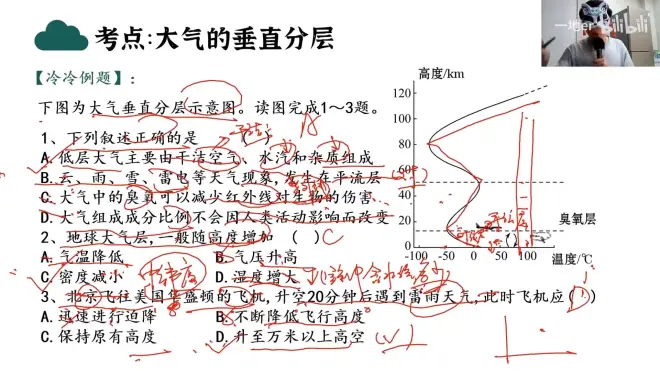 一堆er bilibili
考点:大气的垂直分层
【冷冷例题】:
下图为大气垂直分层示意图。读图完成1～3题。
1、下列叙述正确的是 ( ) A
A.低层大气主要由干洁空气、水汽和杂质组成
B.云、雨、雪、雷电等天气现象,发生在平流层
C.大气中的臭氧可以减少红外线对生物的伤害
D.大气组成成分比例不会因人类活动影响而改变
2、地球大气层,一般随高度增加 ( ) C
A.气温降低 B.气压升高
C.密度减小 D.湿度增大
3、北京飞往美国华盛顿的飞机,升空20分钟后遇到雷雨天气,此时飞机应( ) D
A.迅速进行迫降 B.不断降低飞行高度
C.保持原有高度 D.升至万米以上高空
高度/km
120
100
80
60
40
20
0
臭氧层
-100 -50 0 50 100
温度/℃